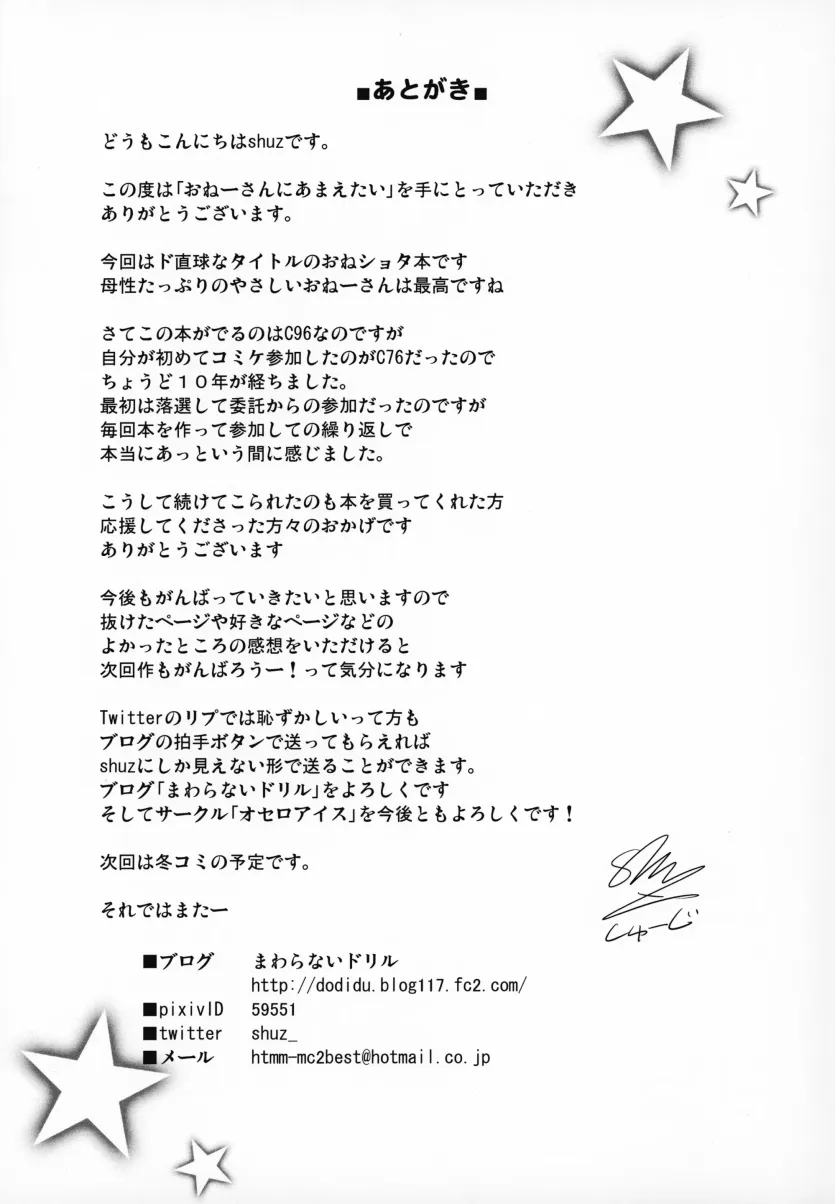 ■あとがき■
どうもこんにちはshuzです。
この度は「おねーさんにあまえたい」を手にとっていただき
ありがとうございます。
今回はド直球なタイトルのおねショタ本です
母性たっぷりのやさしいおねーさんは最高ですね
さてこの本がでるのはC96なのですが
自分が初めてコミケ参加したのがC76だったので
ちょうど１０年が経ちました。
最初は落選して委託からの参加だったのですが
毎回本を作って参加しての繰り返しで
本当にあっという間に感じました。
こうして続けてこられたのも本を買ってくれた方
応援してくださった方々のおかげです
ありがとうございます
今後もがんばっていきたいと思いますので
抜けたページや好きなページなどの
よかったところの感想をいただけると
次回作もがんばろうー！って気分になります
Twitterのリプでは恥ずかしいって方も
ブログの拍手ボタンで送ってもらえれば
shuzにしか見えない形で送ることができます。
ブログ「まわらないドリル」をよろしくです
そしてサークル「オセロアイス」を今後ともよろしくです！
次回は冬コミの予定です。
それではまたー
shuz
しゅーじ
■ブログ まわらないドリル
http://dodidu.blog117.fc2.com/
■pixivID 59551
■twitter shuz_
■メール htmm-mc2best@hotmail.co.jp